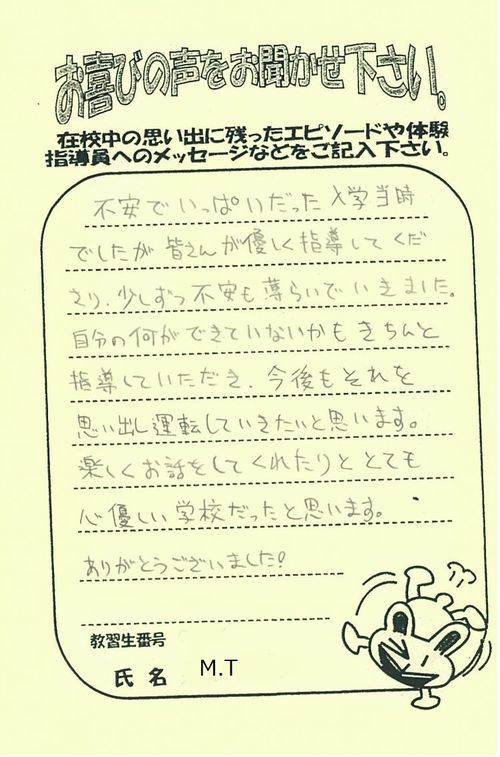 お喜びの声をお聞かせ下さい。
在校中の思い出に残ったエピソードや体験
指導員へのメッセージなどをご記入下さい。
不安でいっぱいだった入学当時
でしたが皆さんが優しく指導してくだ
さり、少しずつ不安も薄らいでいきました。
自分の何ができていないかもきちんと
指導していただき、今後もそれを
思い出し運転していきたいと思います。
楽しくお話をしてくれたりととても
心優しい学校だったと思います。
ありがとうございました!
教習生番号
氏名 M.T